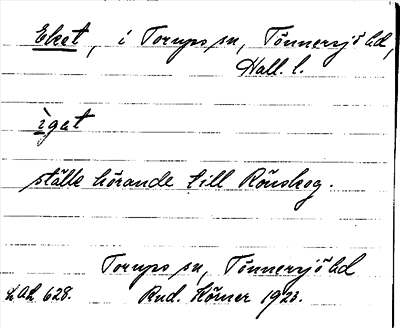 Eket, i Torups sn, Tönnersjö hd,
Hall. l.
ìgat
ställe hörande till Rönskog.
Torups sn, Tönnersjö hd
LAL 628. Rud. Körner 1923.